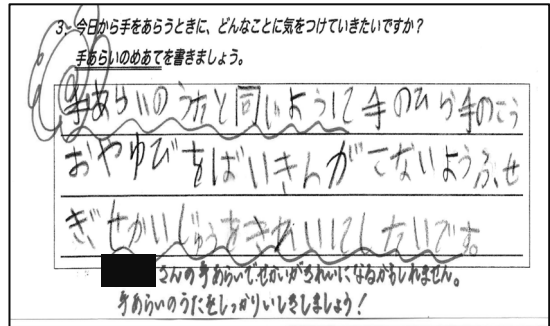 3. 今日から手をあらうときに、どんなことに気をつけていきたいですか？
手あらいのめあてを書きましょう。
手あらいのうたと同じように手のひら手のこう
おやゆびをばいきんがこないようふせ
ぎ、せかいじゅうをきれいにしたいです。
さんの手あらいでせかいがきれいになるかもしれません。
手あらいのうたをしっかりいしきしましょう！